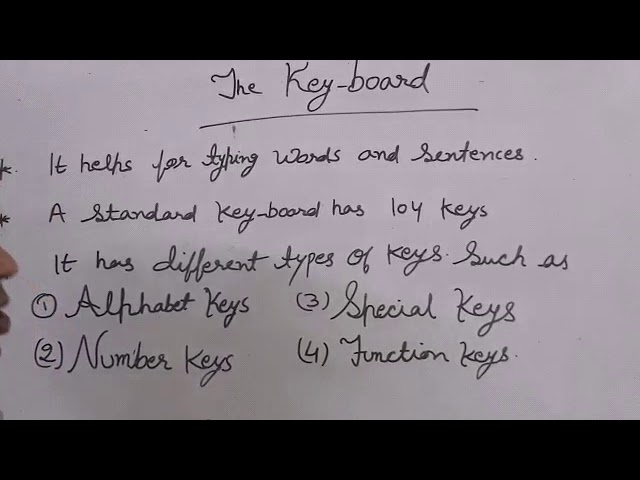 The Key-board
*. It helps for typing words and sentences.
* A standard Key-board has 104 Keys
It has different types of Keys. Such as
① Alphabet Keys (3) Special Keys
(2) Number Keys (4) Function Keys.